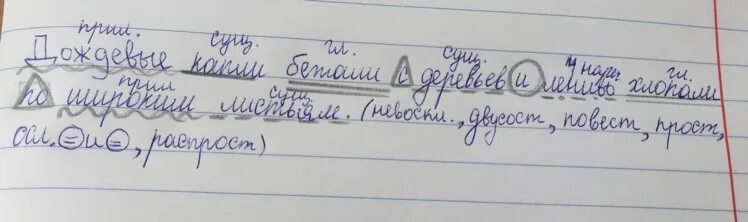 прил. сущ. гл. сущ. нареч. гл.
Дождевые капли бежали с деревьев и лениво хлопали
прил сущ.
по широким листьям. (невоскл., двусост, повест, прост,
осл. = и =, распрост)